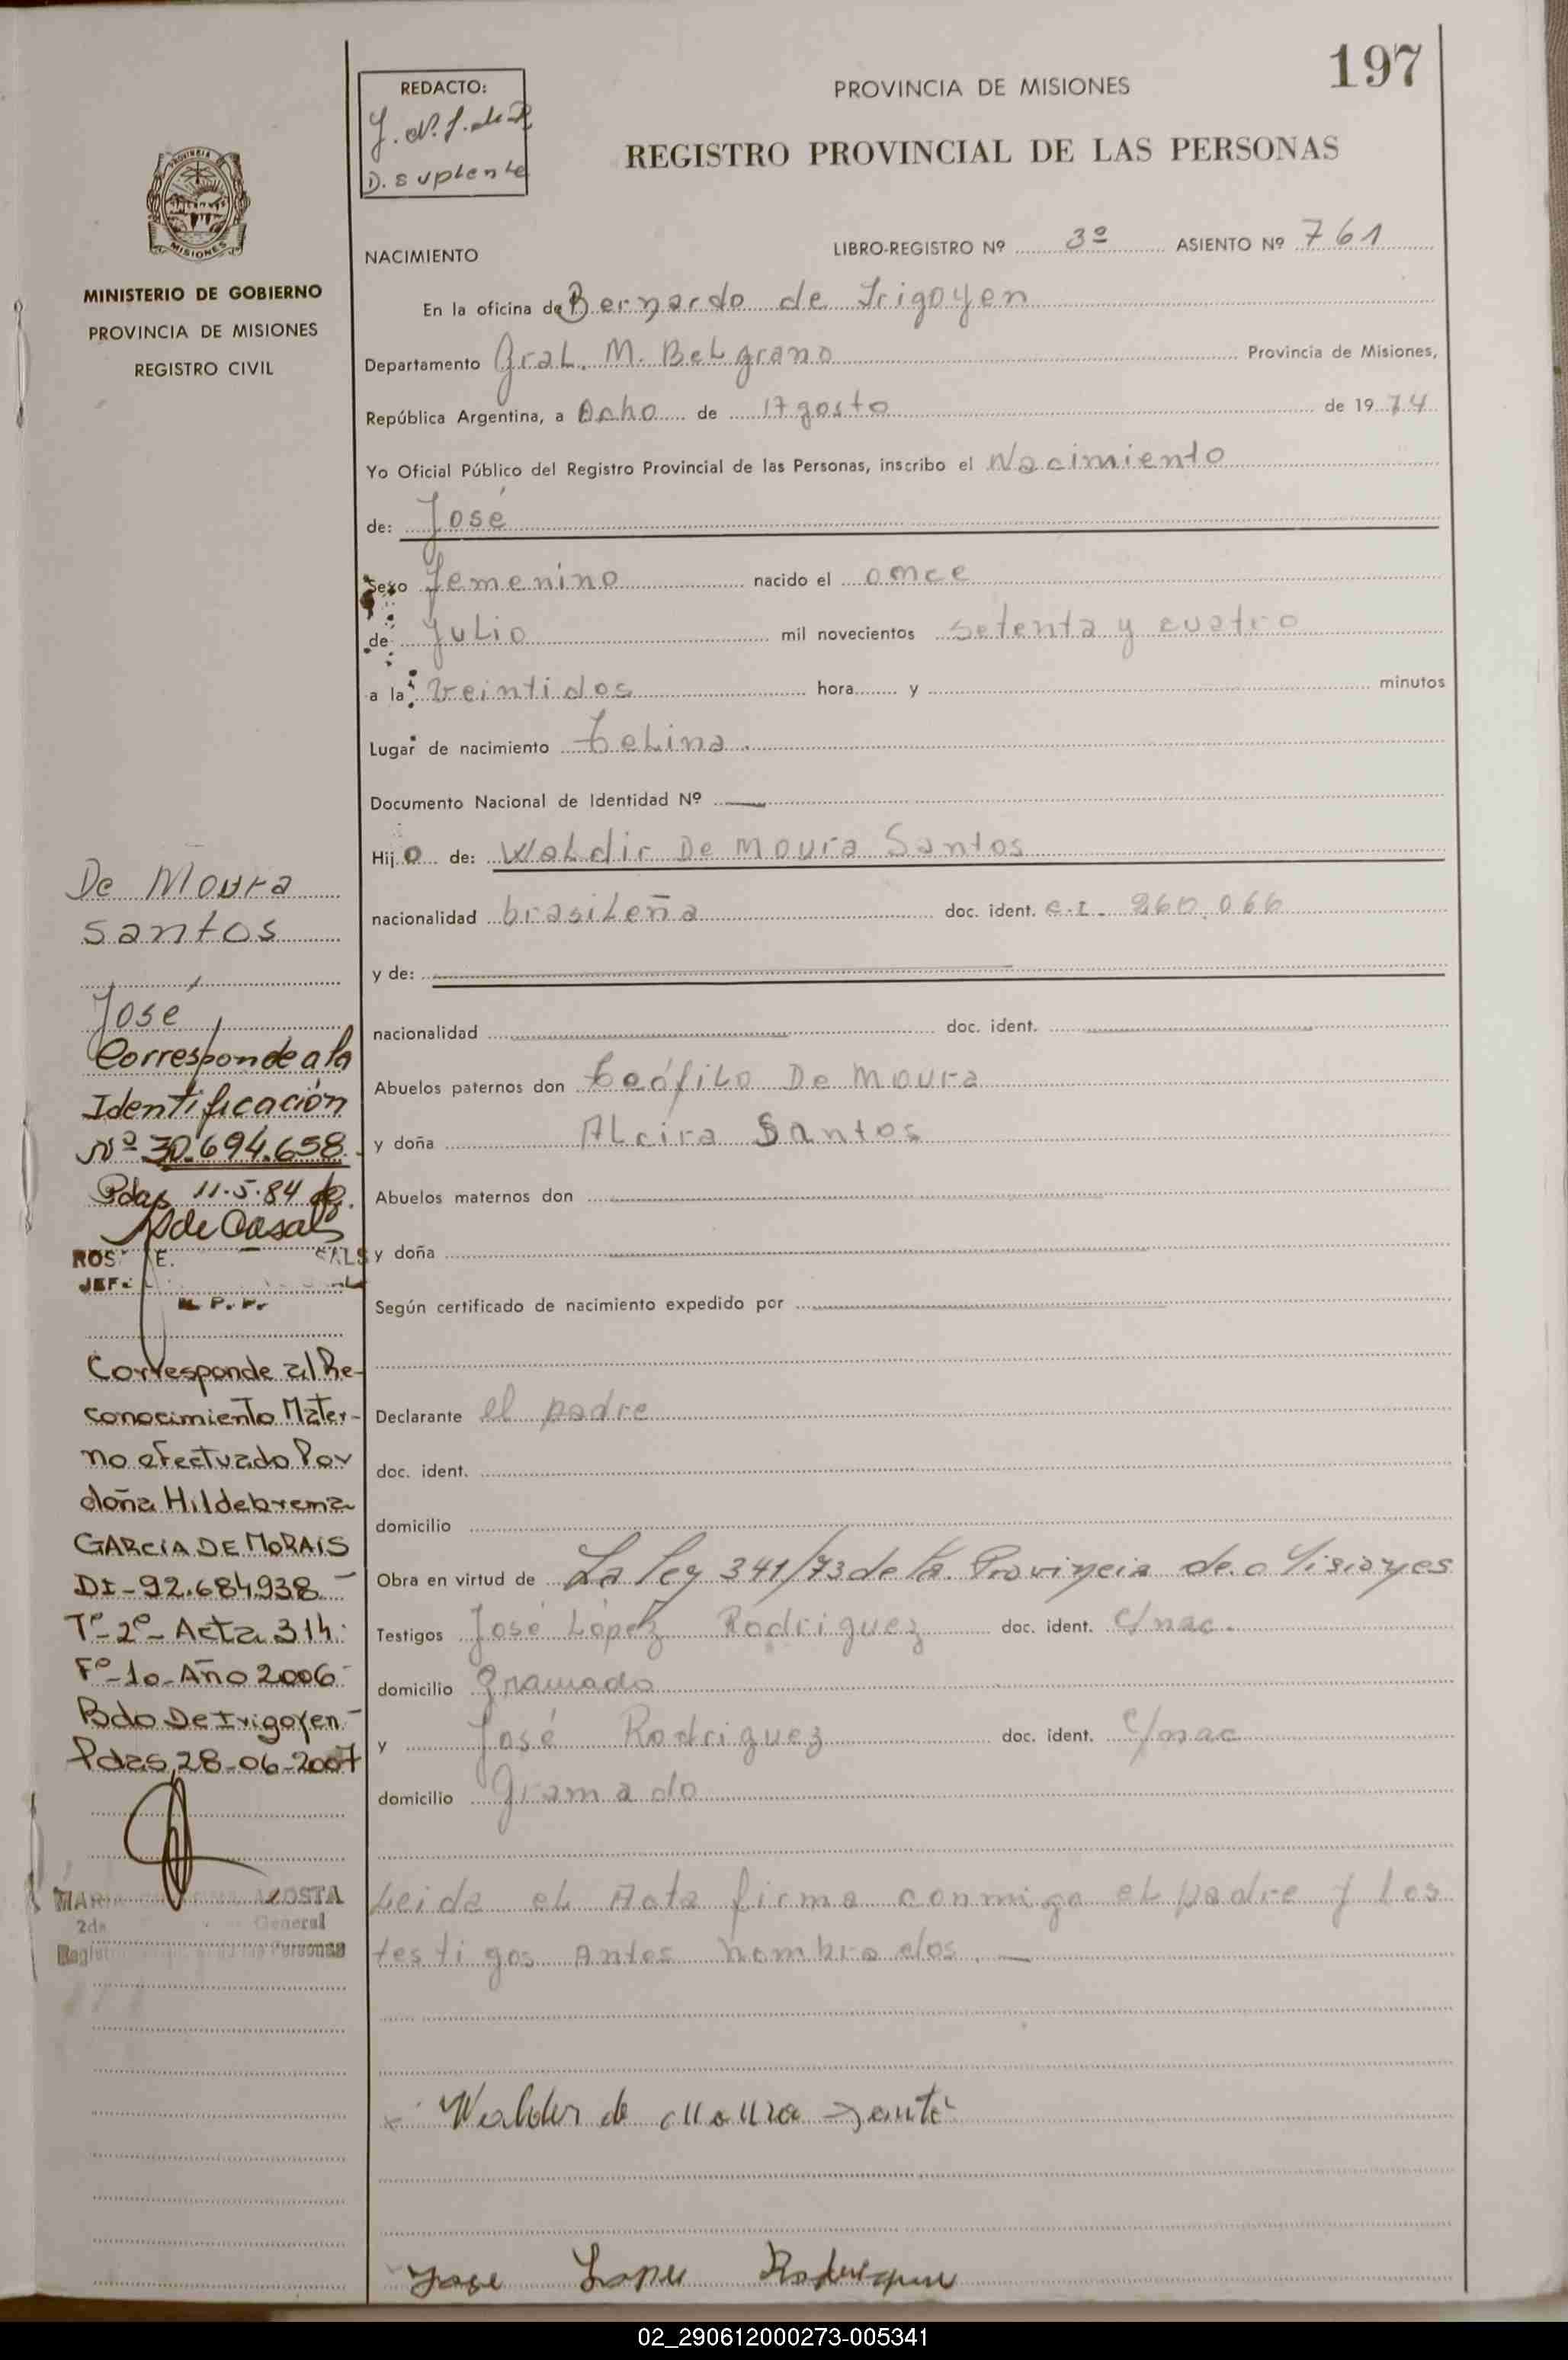 197
REDACTO:
D. suplente
PROVINCIA DE MISIONES
REGISTRO PROVINCIAL DE LAS PERSONAS
NACIMIENTO
LIBRO-REGISTRO Nº 3º ASIENTO Nº 761
En la oficina de Bernardo de Irigoyen
Departamento Gral. M. Belgrano Provincia de Misiones,
República Argentina, a Ocho de Agosto de 1974
Yo Oficial Público del Registro Provincial de las Personas, inscribo el Nacimiento
de: José
Sexo femenino nacido el once
de Julio mil novecientos setenta y cuatro
a la veintidos hora y minutos
Lugar de nacimiento
Documento Nacional de Identidad Nº —
Hijo de: Waldir De Moura Santos
nacionalidad brasileña doc. ident. c.I. 260.066
y de:
nacionalidad doc. ident.
Abuelos paternos don Teófilo De Moura
y doña Alcira Santos
Abuelos maternos don
y doña
Según certificado de nacimiento expedido por
Declarante el padre
doc. ident.
domicilio
Obra en virtud de La ley 341/73 de la Provincia de Misiones
Testigos José López Rodriguez doc. ident. c/nac.
domicilio Gramado
y José Rodriguez doc. ident. c/nac
domicilio Gramado
Leida el Acta firma conmigo el padre y los
testigos Antes nombrados. —
Jose Lopes
MISIONES
MINISTERIO DE GOBIERNO
PROVINCIA DE MISIONES
REGISTRO CIVIL
De Moura
Santos
José
Corresponde a la
Identificación
Nº 30.694.658
Pdas 11.5.84
Corresponde al Re-
conocimiento Mater-
no efectuado Por
doña Hildebrema
GARCIA DE MORAIS
DI-92.684.938-
Tº-2º-Acta 314-
Fº-10-Año 2006-
Bdo De Irigoyen-
Pdas, 28-06-2007
ACOSTA
General
02_290612000273-005341